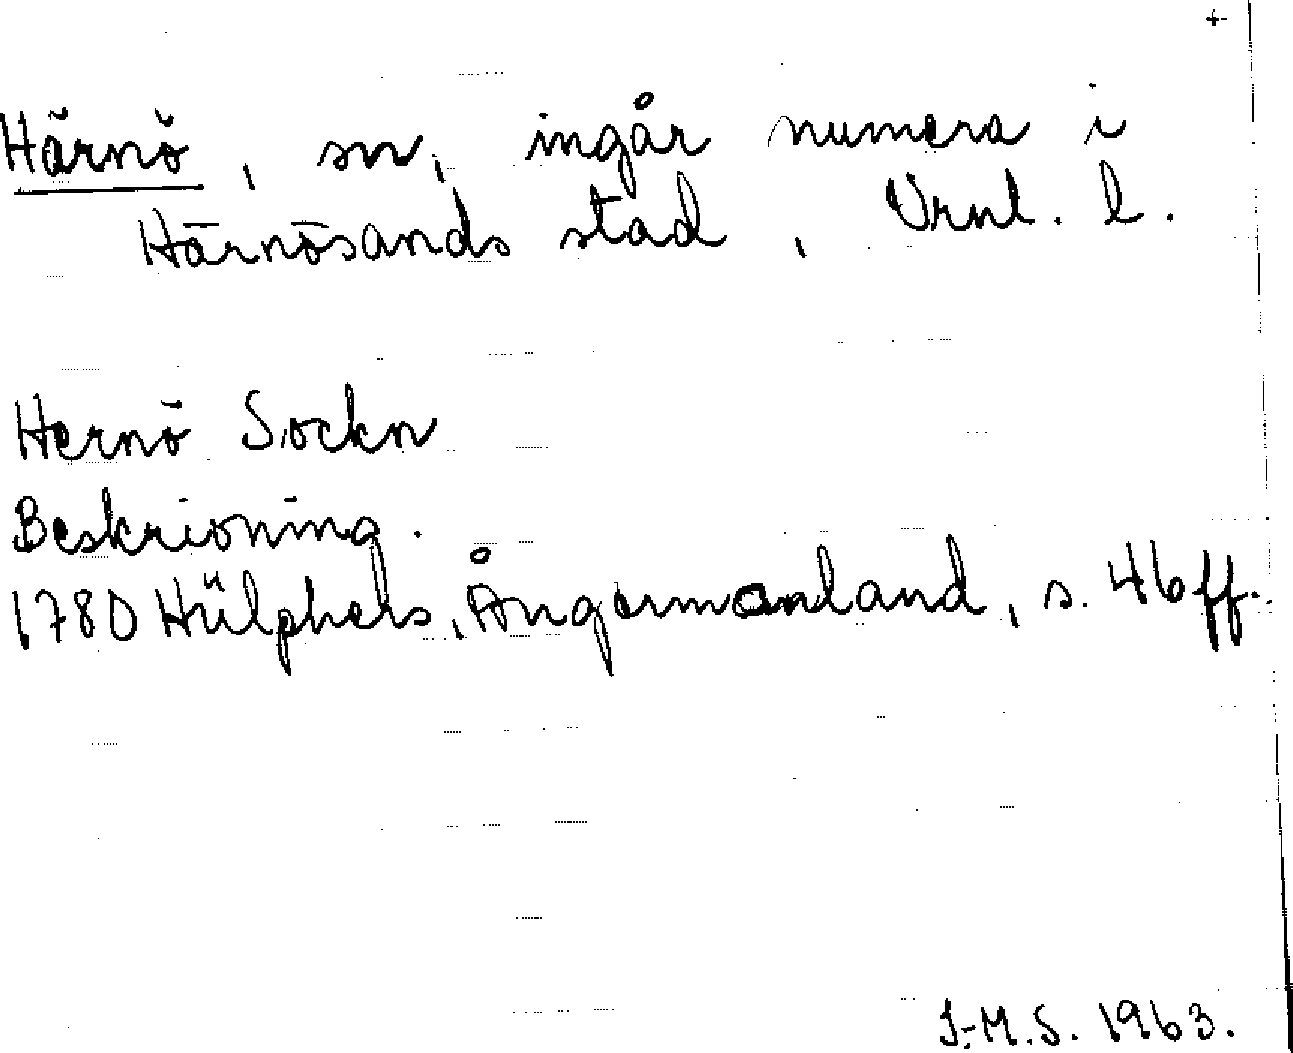 +
Härnö, sn, ingår numera i
Härnösands stad, Vrnl. l.
Hernö Sockn
Beskrivning.
1780 Hülphers, Ångermanland, s. 46 ff.
I-M.S. 1963.